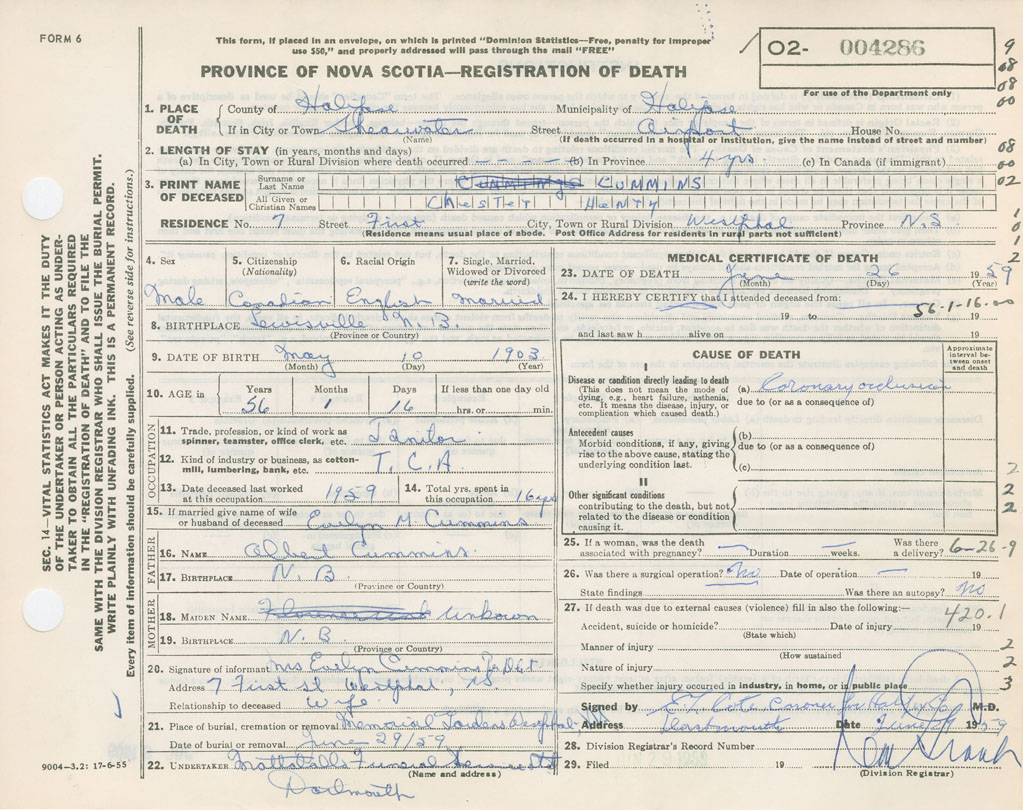 FORM 6
This form, if placed in an envelope, on which is printed "Dominion Statistics—Free, penalty for improper
use $50," and properly addressed will pass through the mail "FREE"
PROVINCE OF NOVA SCOTIA—REGISTRATION OF DEATH
02- 004286
For use of the Department only
9
08
08
00
08
00
02
1
0
1
2
SEC. 14—VITAL STATISTICS ACT MAKES IT THE DUTY
OF THE UNDERTAKER OR PERSON ACTING AS UNDER-
TAKER TO OBTAIN ALL THE PARTICULARS REQUIRED
IN THE "REGISTRATION OF DEATH" AND FILE THE
SAME WITH THE DIVISION REGISTRAR WHO SHALL ISSUE THE BURIAL PERMIT.
WRITE PLAINLY WITH UNFADING INK. THIS IS A PERMANENT RECORD.
Every item of information should be carefully supplied. (See reverse side for instructions.)
1. PLACE OF DEATH County of Halifax Municipality of Halifax
If in City or Town Shearwater Street Airport House No.
(Name) (If death occurred in a hospital or institution, give the name instead of street and number)
2. LENGTH OF STAY (in years, months and days)
(a) In City, Town or Rural Division where death occurred - - - - (b) In Province 4 yrs. (c) In Canada (if immigrant)
3. PRINT NAME OF DECEASED Surname or Last Name CUMMINGS CUMMINS
All Given or Christian Names CHESTER HENRY
RESIDENCE No. 7 Street First City, Town or Rural Division Westphal Province N.S
(Residence means usual place of abode. Post Office Address for residents in rural parts not sufficient)
4. Sex 5. Citizenship (Nationality) 6. Racial Origin 7. Single, Married, Widowed or Divorced (write the word)
Male Canadian English Married
8. BIRTHPLACE Lewisville N.B.
(Province or Country)
9. DATE OF BIRTH May 10 1903
(Month) (Day) (Year)
10. AGE in Years Months Days If less than one day old
56 1 16 hrs. or min.
OCCUPATION
11. Trade, profession, or kind of work as
spinner, teamster, office clerk, etc. Janitor
12. Kind of industry or business, as cotton-
mill, lumbering, bank, etc. T.C.A
13. Date deceased last worked at this occupation 1959 14. Total yrs. spent in this occupation 16 yrs
15. If married give name of wife
or husband of deceased Evelyn M Cummins
FATHER
16. NAME Albert Cummins
17. BIRTHPLACE N.B.
(Province or Country)
MOTHER
18. MAIDEN NAME Unkown
19. BIRTHPLACE N.B.
(Province or Country)
20. Signature of informant Mrs Evelyn Cummins
Address 7 First St Westphal, N.S.
Relationship to deceased Wife
21. Place of burial, cremation or removal Memorial Gardens Westphal
Date of burial or removal June 29/59
22. UNDERTAKER Mattatalls Funeral Service Ltd
(Name and address)
Dartmouth
9004-3.2: 17-6-55
MEDICAL CERTIFICATE OF DEATH
23. DATE OF DEATH June 26 1959
(Month) (Day) (Year)
24. I HEREBY CERTIFY that I attended deceased from:
19 to 19
56-1-16-00
and last saw h alive on 19
CAUSE OF DEATH
Approximate interval between onset and death
I
Disease or condition directly leading to death
(This does not mean the mode of dying, e.g., heart failure, asthenia, etc. It means the disease, injury, or complication which caused death.)
(a) Coronary occlusion
due to (or as a consequence of)
Antecedent causes
Morbid conditions, if any, giving rise to the above cause, stating the underlying condition last.
(b)
due to (or as a consequence of)
(c)
II
Other significant conditions
contributing to the death, but not related to the disease or condition causing it.
2
2
2
25. If a woman, was the death associated with pregnancy? — Duration weeks. Was there a delivery? 6-26-9
26. Was there a surgical operation? No Date of operation — 19
State findings Was there an autopsy? No
27. If death was due to external causes (violence) fill in also the following:—
420.1
Accident, suicide or homicide? Date of injury 19
(State which)
Manner of injury 2
(How sustained
Nature of injury 2
Specify whether injury occurred in industry, in home, or in public place 3
Signed by M.D.
Address Dartmouth Date June 29 1959
28. Division Registrar's Record Number
29. Filed 19
(Division Registrar)